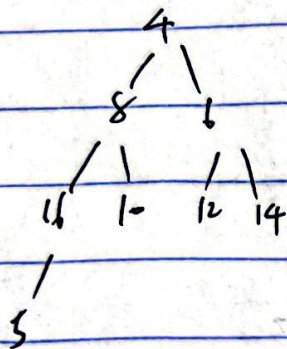 4
8 6
16 10 12 14
5